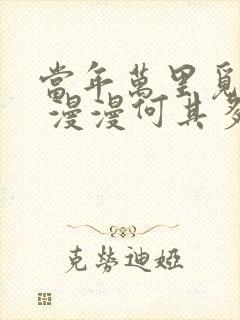 當年萬里覓
漫漫何其多
克勞迪婭